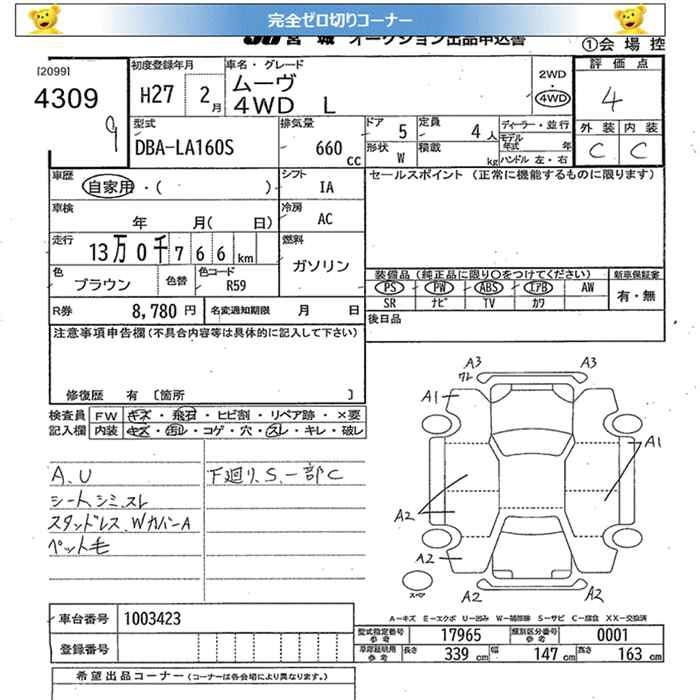 完全ゼロ切りコーナー
JU 宮城 オークション出品申込書
①会場控
[2099]
4309
9
初度登録年月
H27 2月
車名・グレード
ムーヴ
4WD L
2WD
・
4WD
評価点
4
外装 内装
C C
型式
DBA-LA160S
排気量
660 cc
ドア 5
定員 4人
形状 W
積載 kg
ディーラー・並行
モデル年式 年
ハンドル 左・右
車歴
自家用・( )
シフト
IA
セールスポイント (正常に機能するものに限ります)
車検
年 月( 日)
冷房
AC
走行
13万0千766km
燃料
ガソリン
色
ブラウン
色替
色コード
R59
装備品 (純正品に限り○をつけてください)
PS PW ABS エアB AW
SR ナビ TV カワ
新車保証書
有・無
R券 8,780円
名変通知期限 月 日
後日品
注意事項申告欄 (不具合内容等は具体的に記入して下さい)
修復歴 有 〔箇所 〕
検査員 FW キズ・飛石・ヒビ割・リペア跡・×要
記入欄 内装 キズ・汚レ・コゲ・穴・スレ・キレ・破レ
A、U
シートシミ、スレ
スタッドレス、WカバーA
ペット毛
下廻り、S、一部C
A3
ワレ
A3
A1
A1
A2
A2
A2
A2
A2
スペア
A-キズ E-エクボ U-凹み W-補修跡 S-サビ C-腐食 XX-交換済
車台番号 1003423
登録番号
型式指定番号 参考 17965
類別区分番号 参考 0001
車庫証明用 参考 長さ 339cm 幅 147cm 高さ 163cm
希望出品コーナー (コーナーは各会場により異なります。)